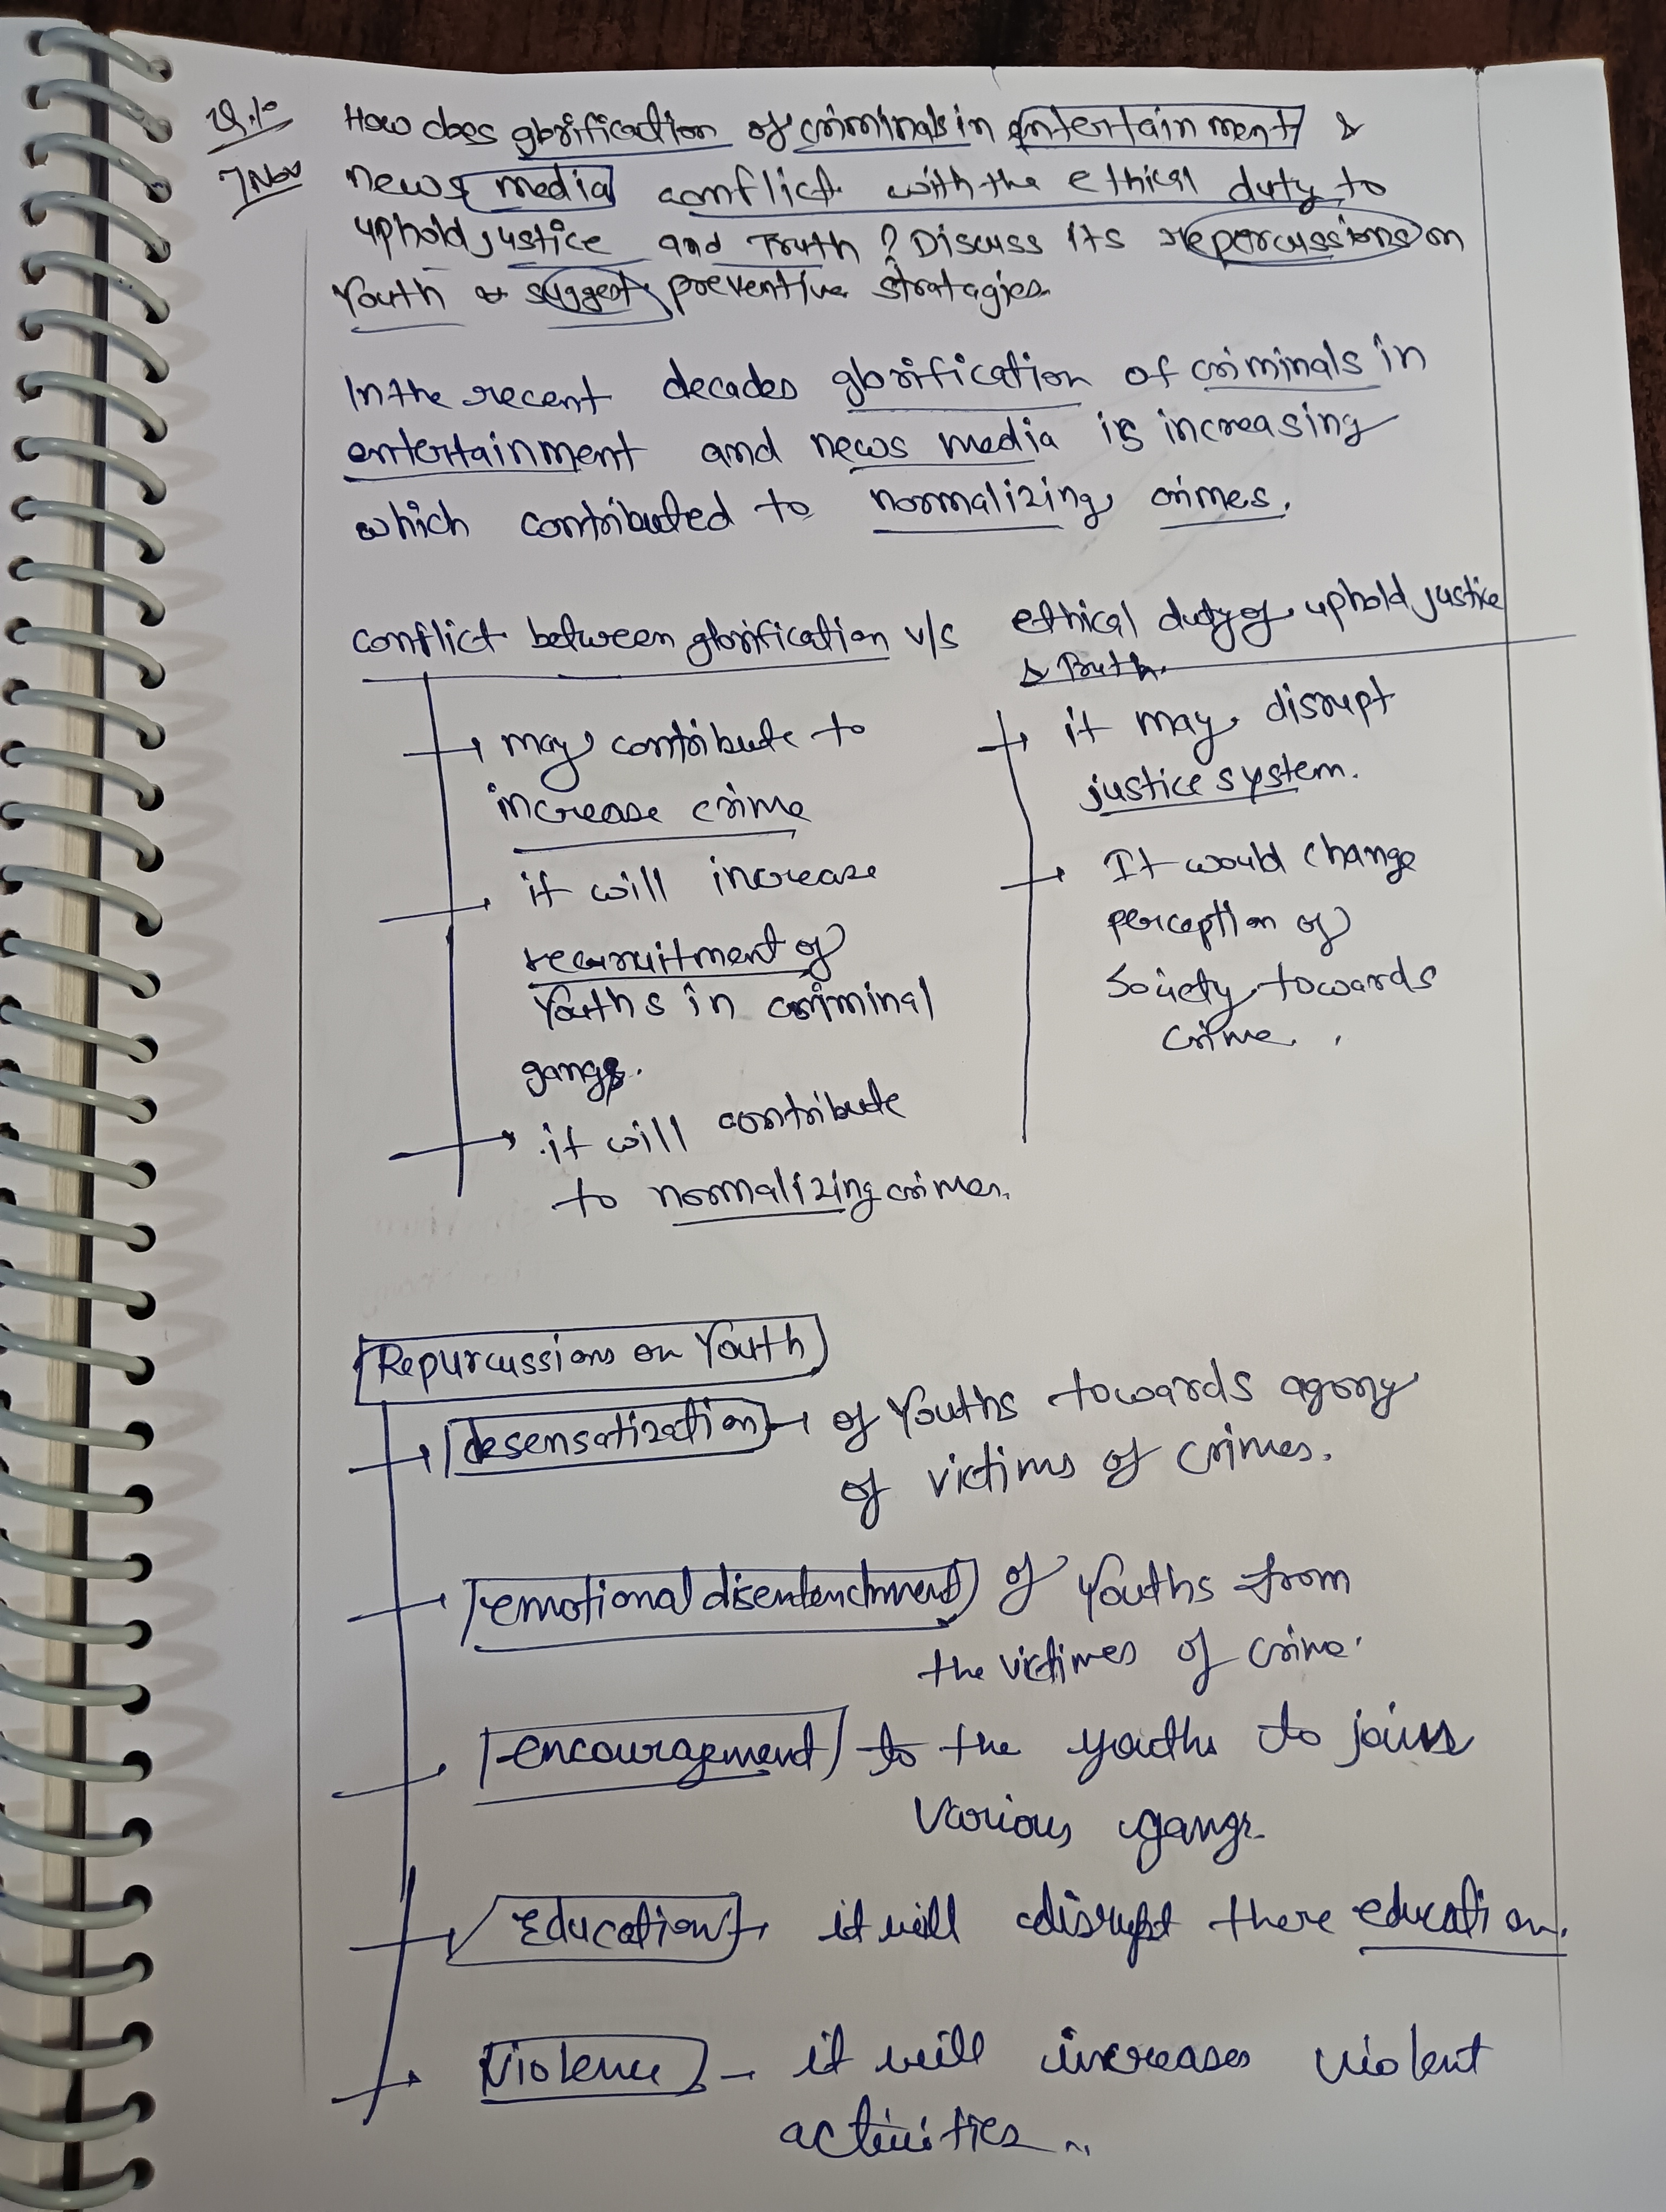 Q.10
7 Nov
How does glorification of criminals in entertainment &
news media conflict with the ethical duty to
uphold justice and Truth? Discuss its repercussions on
Youth & suggest preventive stratagies.
In the recent decades glorification of criminals in
entertainment and news media is increasing
which contributed to normalizing crimes.
conflict between glorification v/s ethical duty of uphold justice
& Truth.
may contribute to
increase crime
it will increase
recruitment of
Youths in criminal
gangs.
it will contribute
to normalizing crimes.
it may disrupt
justice system.
It would change
perception of
Society towards
crime.
Repurcussions on Youth
desensatization → of Youths towards agony
of victims of crimes.
emotional of Youths from
the victimes of crime.
encouragement to the youths to joins
various gangs.
Education → it will disrupt there education.
Violence - it will increases violent
activities